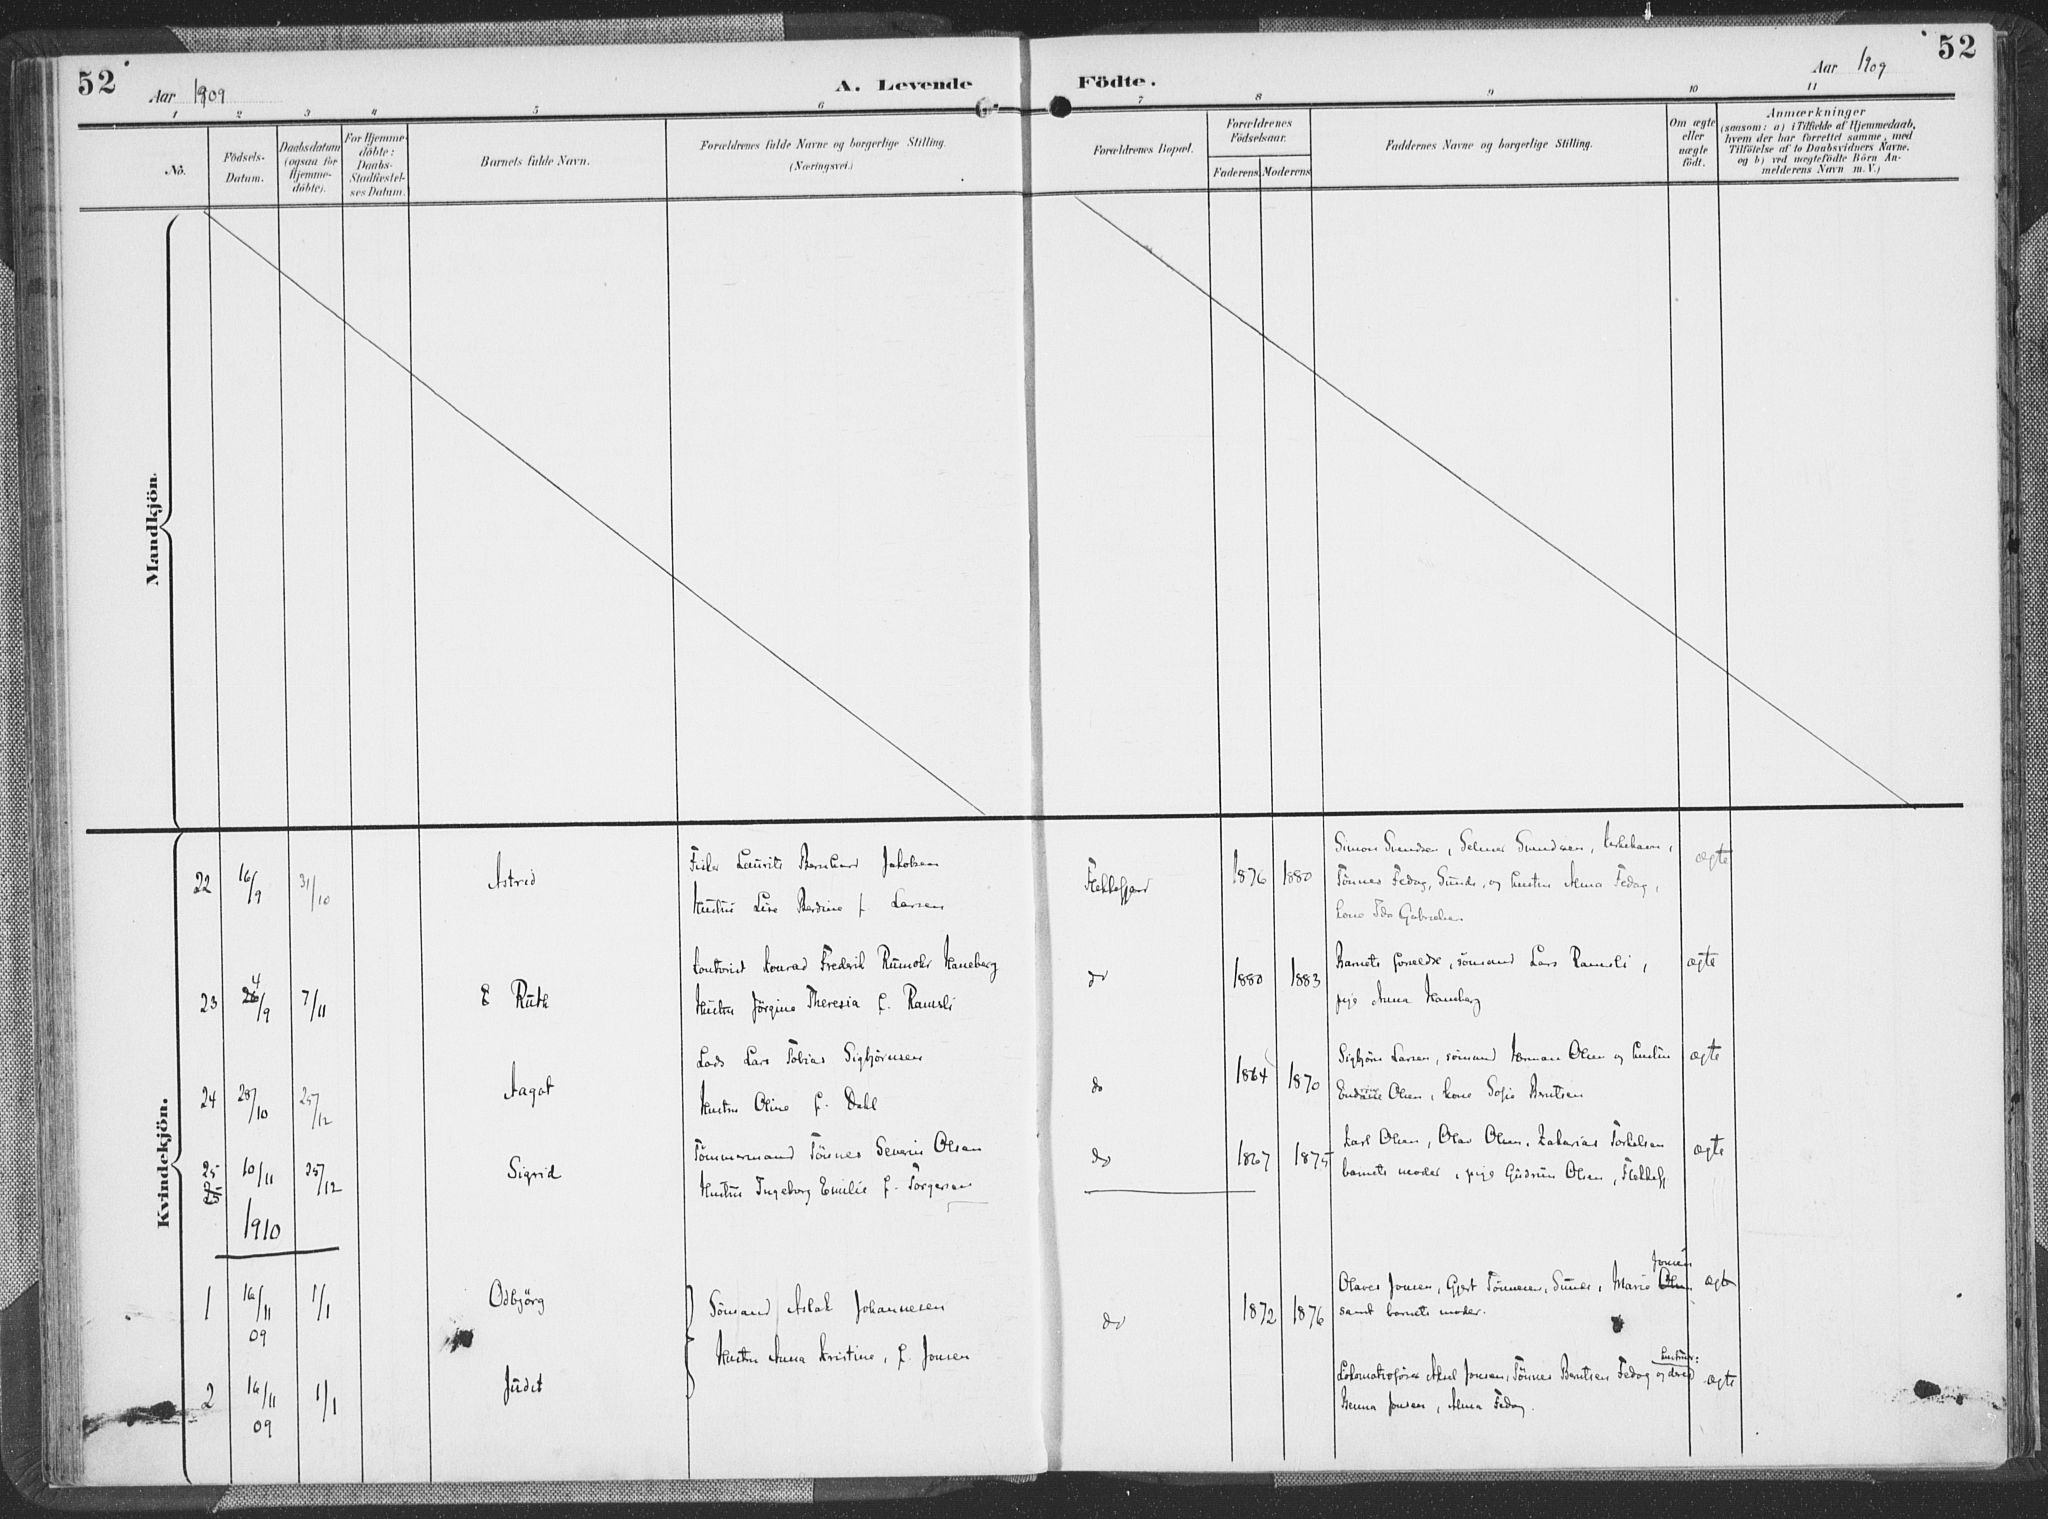 52
Aar 1909
A. Levende
Födte.
Aar 1909
52
1 2 3 4 5 6 7 8 9 10 11
No.
Födsels-
Datum.
Daabsdatum
(ogsaa for
Hjemme-
döbte).
For Hjemme-
döbte:
Daabs-
Stadfæstel-
ses Datum.
Barnets fulde Navn.
Forældrenes fulde Navne og borgerlige Stilling.
(Næringsvei.)
Forældrenes Bopæl.
Forældrenes
Födselsaar.
Faderens Moderens
Faddernes Navne og borgerlige Stilling.
Om ægte
eller
uægte
födt.
Anmærkninger
(saasom: a) i Tilfælde af Hjemmedaab,
hvem der har forrettet samme, med
Tilföielse af to Daabsvidners Navne,
og b) ved uægtefödte Börn An-
melderens Navn m. V.)
Mandkjön.
Kvindekjön.
22 16/9 31/10 Astrid
Fisker Laurits Bernhard Jakobsen
Hustru Lise Berdine f. Larsen
Flekkefjord 1876 1880
Simon Svendsen, Selmer Svendsen, Kirkehavn,
Tönnes Fedog, Sunde, og hustru Alma Fedog,
kone Ida Gabrielsen
ægte
23 24/9 7/11 Ruth
Kontorist Konrad Fredrik Rumohr Haneborg
Hustru Jörgine Theresia f. Ramsli
do 1880 1883
Barnets forældre, sömand Lars Ramsli,
pige Anna Haneborg
ægte
24 28/10 25/12 Aagot
Lods Lars Tobias Sigbjörnsen
Hustru Oline f. Dahl
do 1864 1870
Sigbjörn Larsen, sömand Herman Olsen og hustru
Olsen, kone Sofie Berntsen
ægte
25 10/11 25/12 Sigrid
Tömmermand Tönnes Severin Olsen
Hustru Ingeborg Emilie f. Torgersen
do 1867 1875
Karl Olsen, Olav Olsen, Zakarias Torkelsen
barnets moder, pige Gudrun Olsen, Flekkefj
ægte
1910
1 16/11 09 1/1 Odbjörg
Sömand Aslak Johannesen
Hustru Anna Kristine, f. Jonsen
do 1872 1876
Olaves Jonsen, Gjert Tönnesen, Sunde, Marie Olsen Jonsen
samt barnets moder.
ægte
2 16/11 09 1/1 Judit
Lokomotivförer Aksel Jonsen, Tönnes Berntsen Fedog og deres hustruer:
Jonsen, Alma Fedog.
ægte